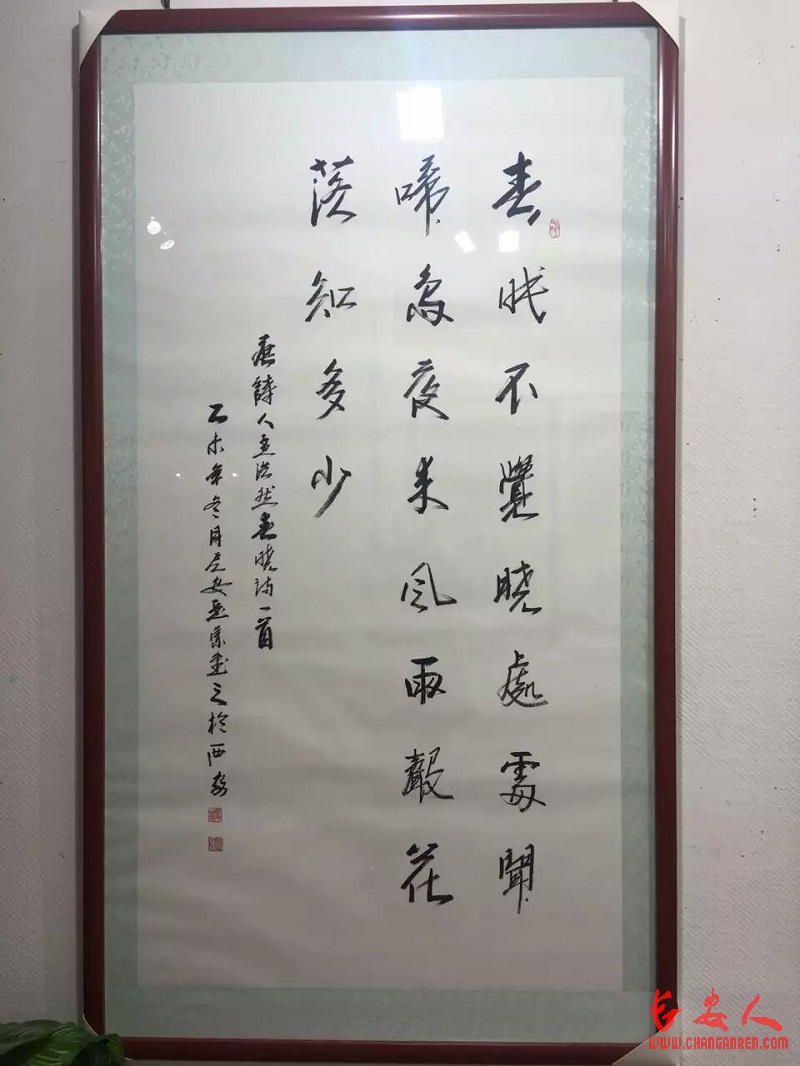 春眠不覺曉處處聞
啼鳥夜来風雨聲花
落知多少
唐詩人孟浩然春曉詩一首
乙未年冬月 書之於西安
长安人
WWW.CHANGANREN.COM